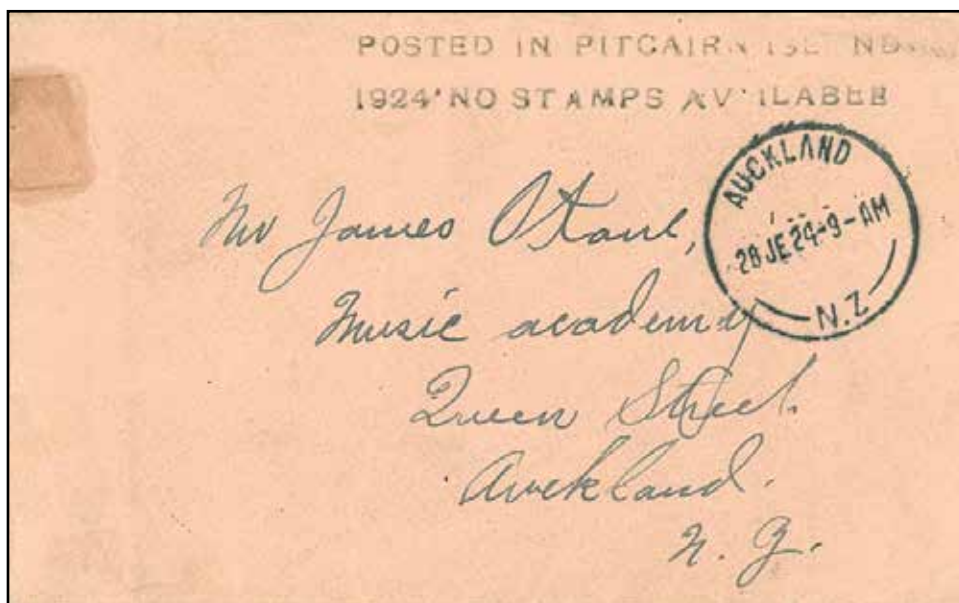 POSTED IN PITCAIRN ISL ND
1924 NO STAMPS AV ILABEE
AUCKLAND
28 JE 24-9-AM
N.Z
Mr James
Music academy
Queen Street.
Auckland.
N. Z.